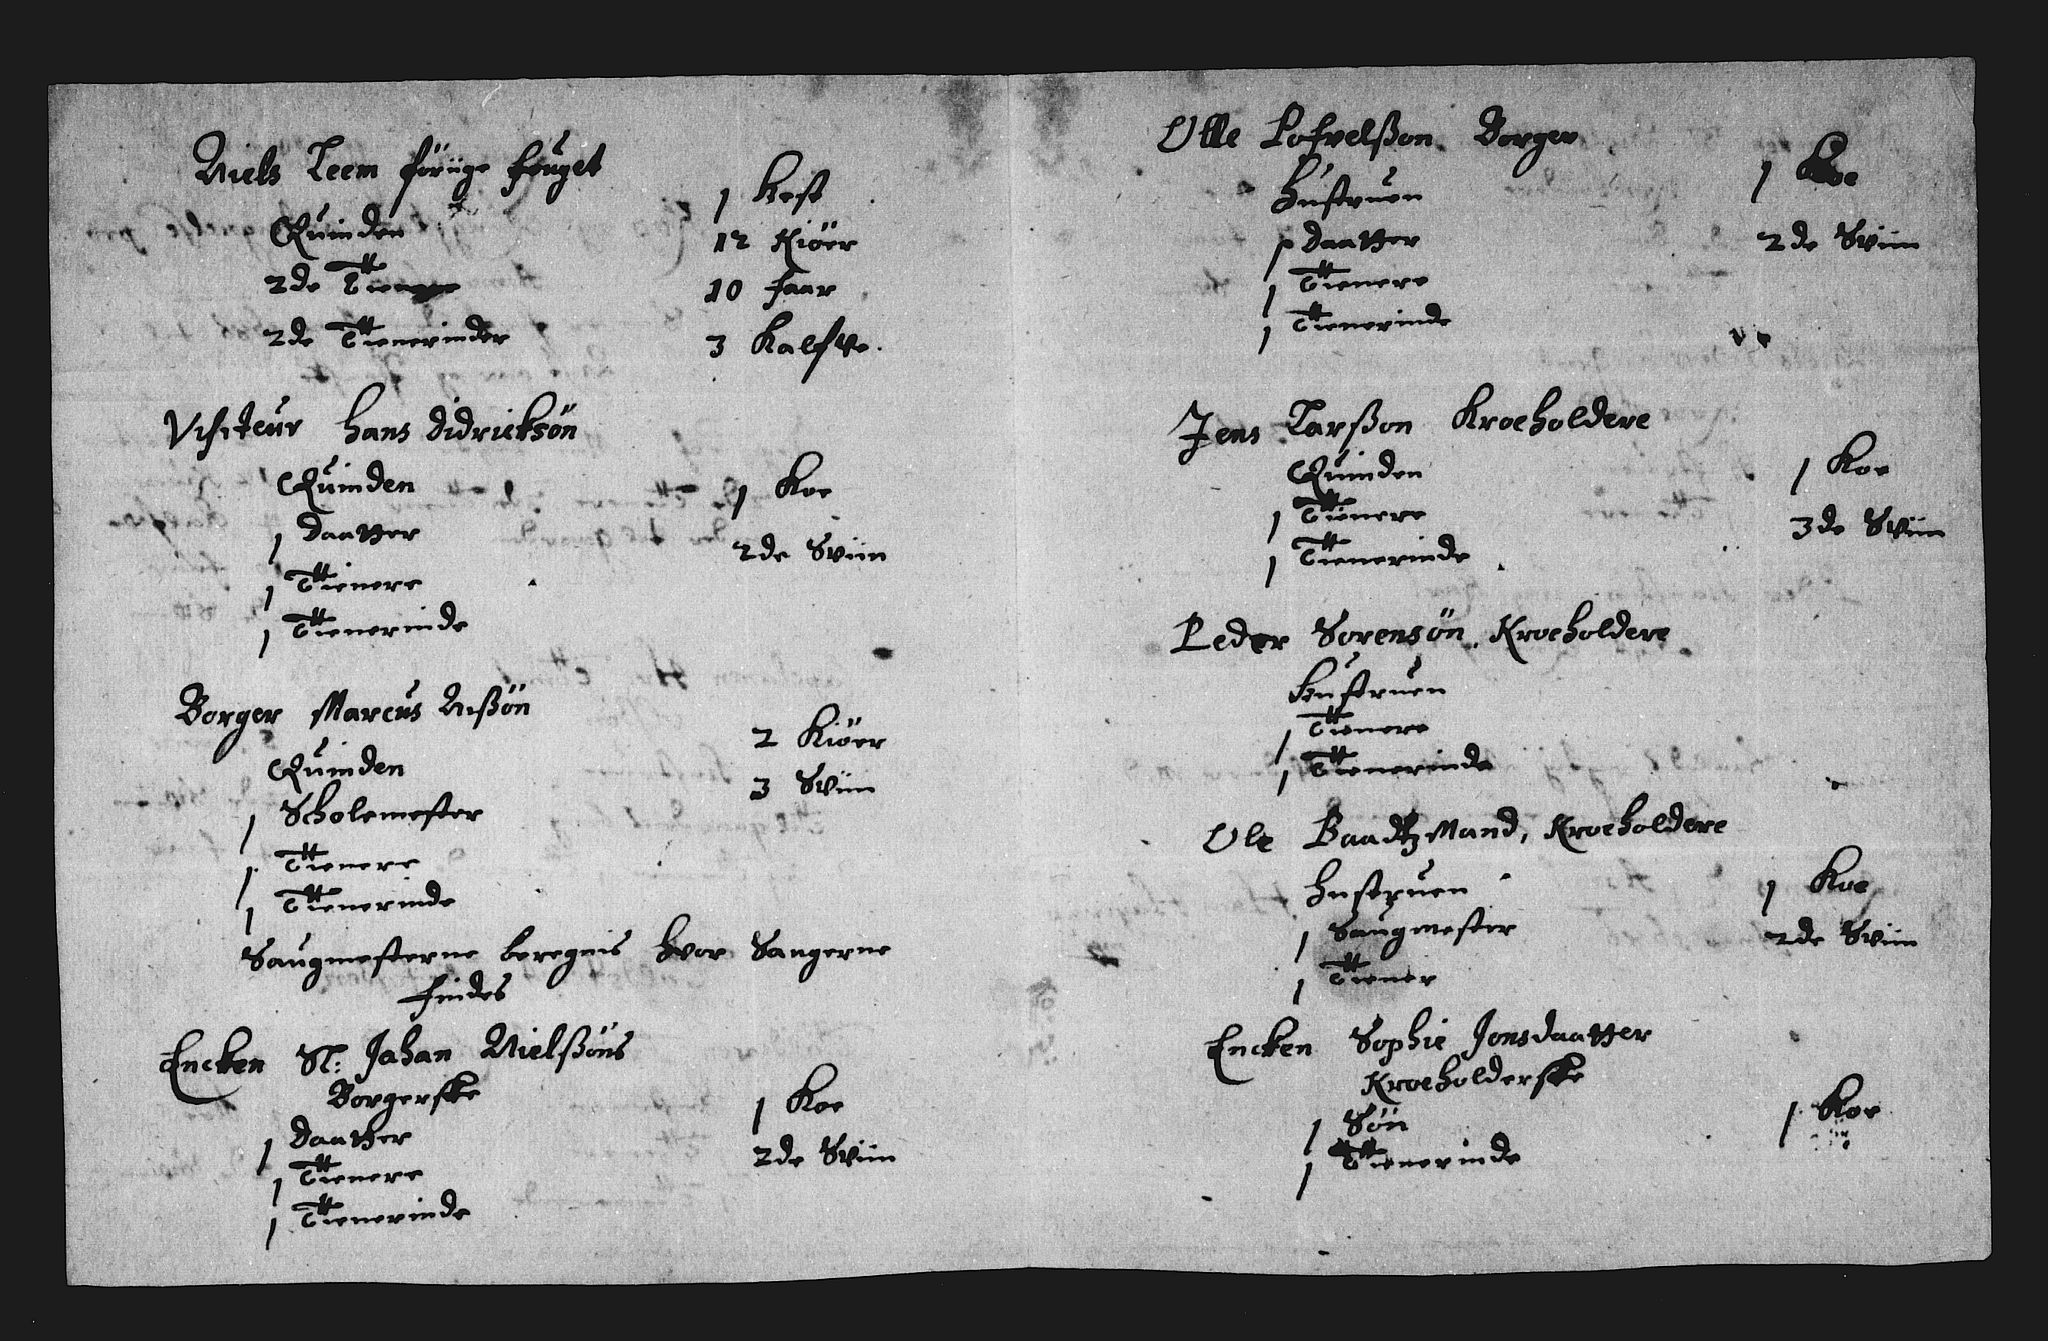 Niels Teem föriige fouget
Quinden
2de Ttienere
2de Ttienerinder
1 Hest
12 Kiöer
10 faar
3 Kalfve.
Visiteur Hans Didricksön
Quinden
1 Daatter
1 Ttienere
1 Ttienerinde
1 Koe
2de Sviin
Borger Marcus Nißön
Quinden
1 Scholemester
1 Ttienere
1 Ttienerinde
2 Kiöer
3 Sviin
Saugmesterne beregnis hvor Saugerne
findes
Encken Sl: Jahan Nielßöns
Borgerske
1 Daatter
1 Ttienere
1 Ttienerinde
1 Koe
2de Sviin
Olle Borger
Hustruen
1 Daatter
1 Ttienere
1 Ttienerinde
1 Koe
2de Sviin
Jens Larßon Kroeholdere
Quinden
1 Ttienere
1 Ttienerinde
1 Koe
3de Sviin
Peder Sorensön. Kroeholdere
Hustruen
1 Ttienere
1 Ttienerinde
Ole Baadtzmand, Kroeholdere
Hustruen
1 Saugmester
1 Ttiener
1 Koe
2de Sviin
Encken Sophie Jonsdaatter
Kroeholderske
1 Sön
1 Ttienerinde
1 Koe